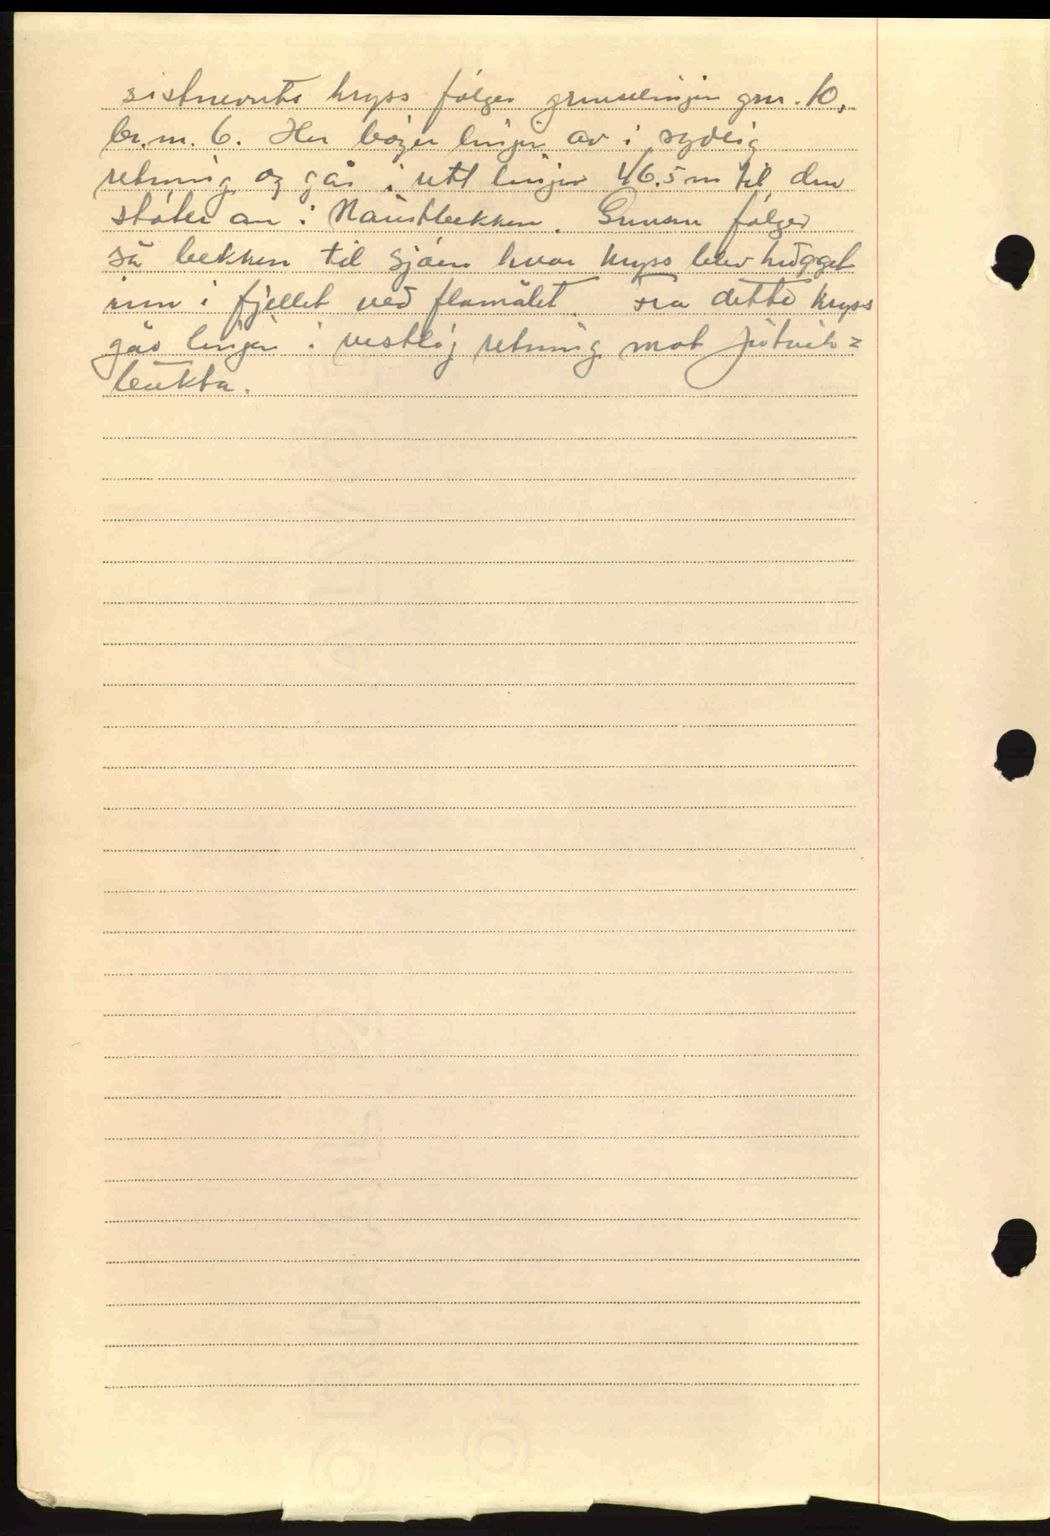 sistnevnte kryss følger grenselinjen grn. 10,
br.nr. 6. Her bøyer linjen av i sydlig
retning og går i rett linje 46.5 m til den
støter an i Naustbekken. Grensen følger
så bekken til sjøen hvor kryss blev hugget
inn i fjellet ved flomålet. Fra dette kryss
går linjen i vestlig retning mot
bukta.